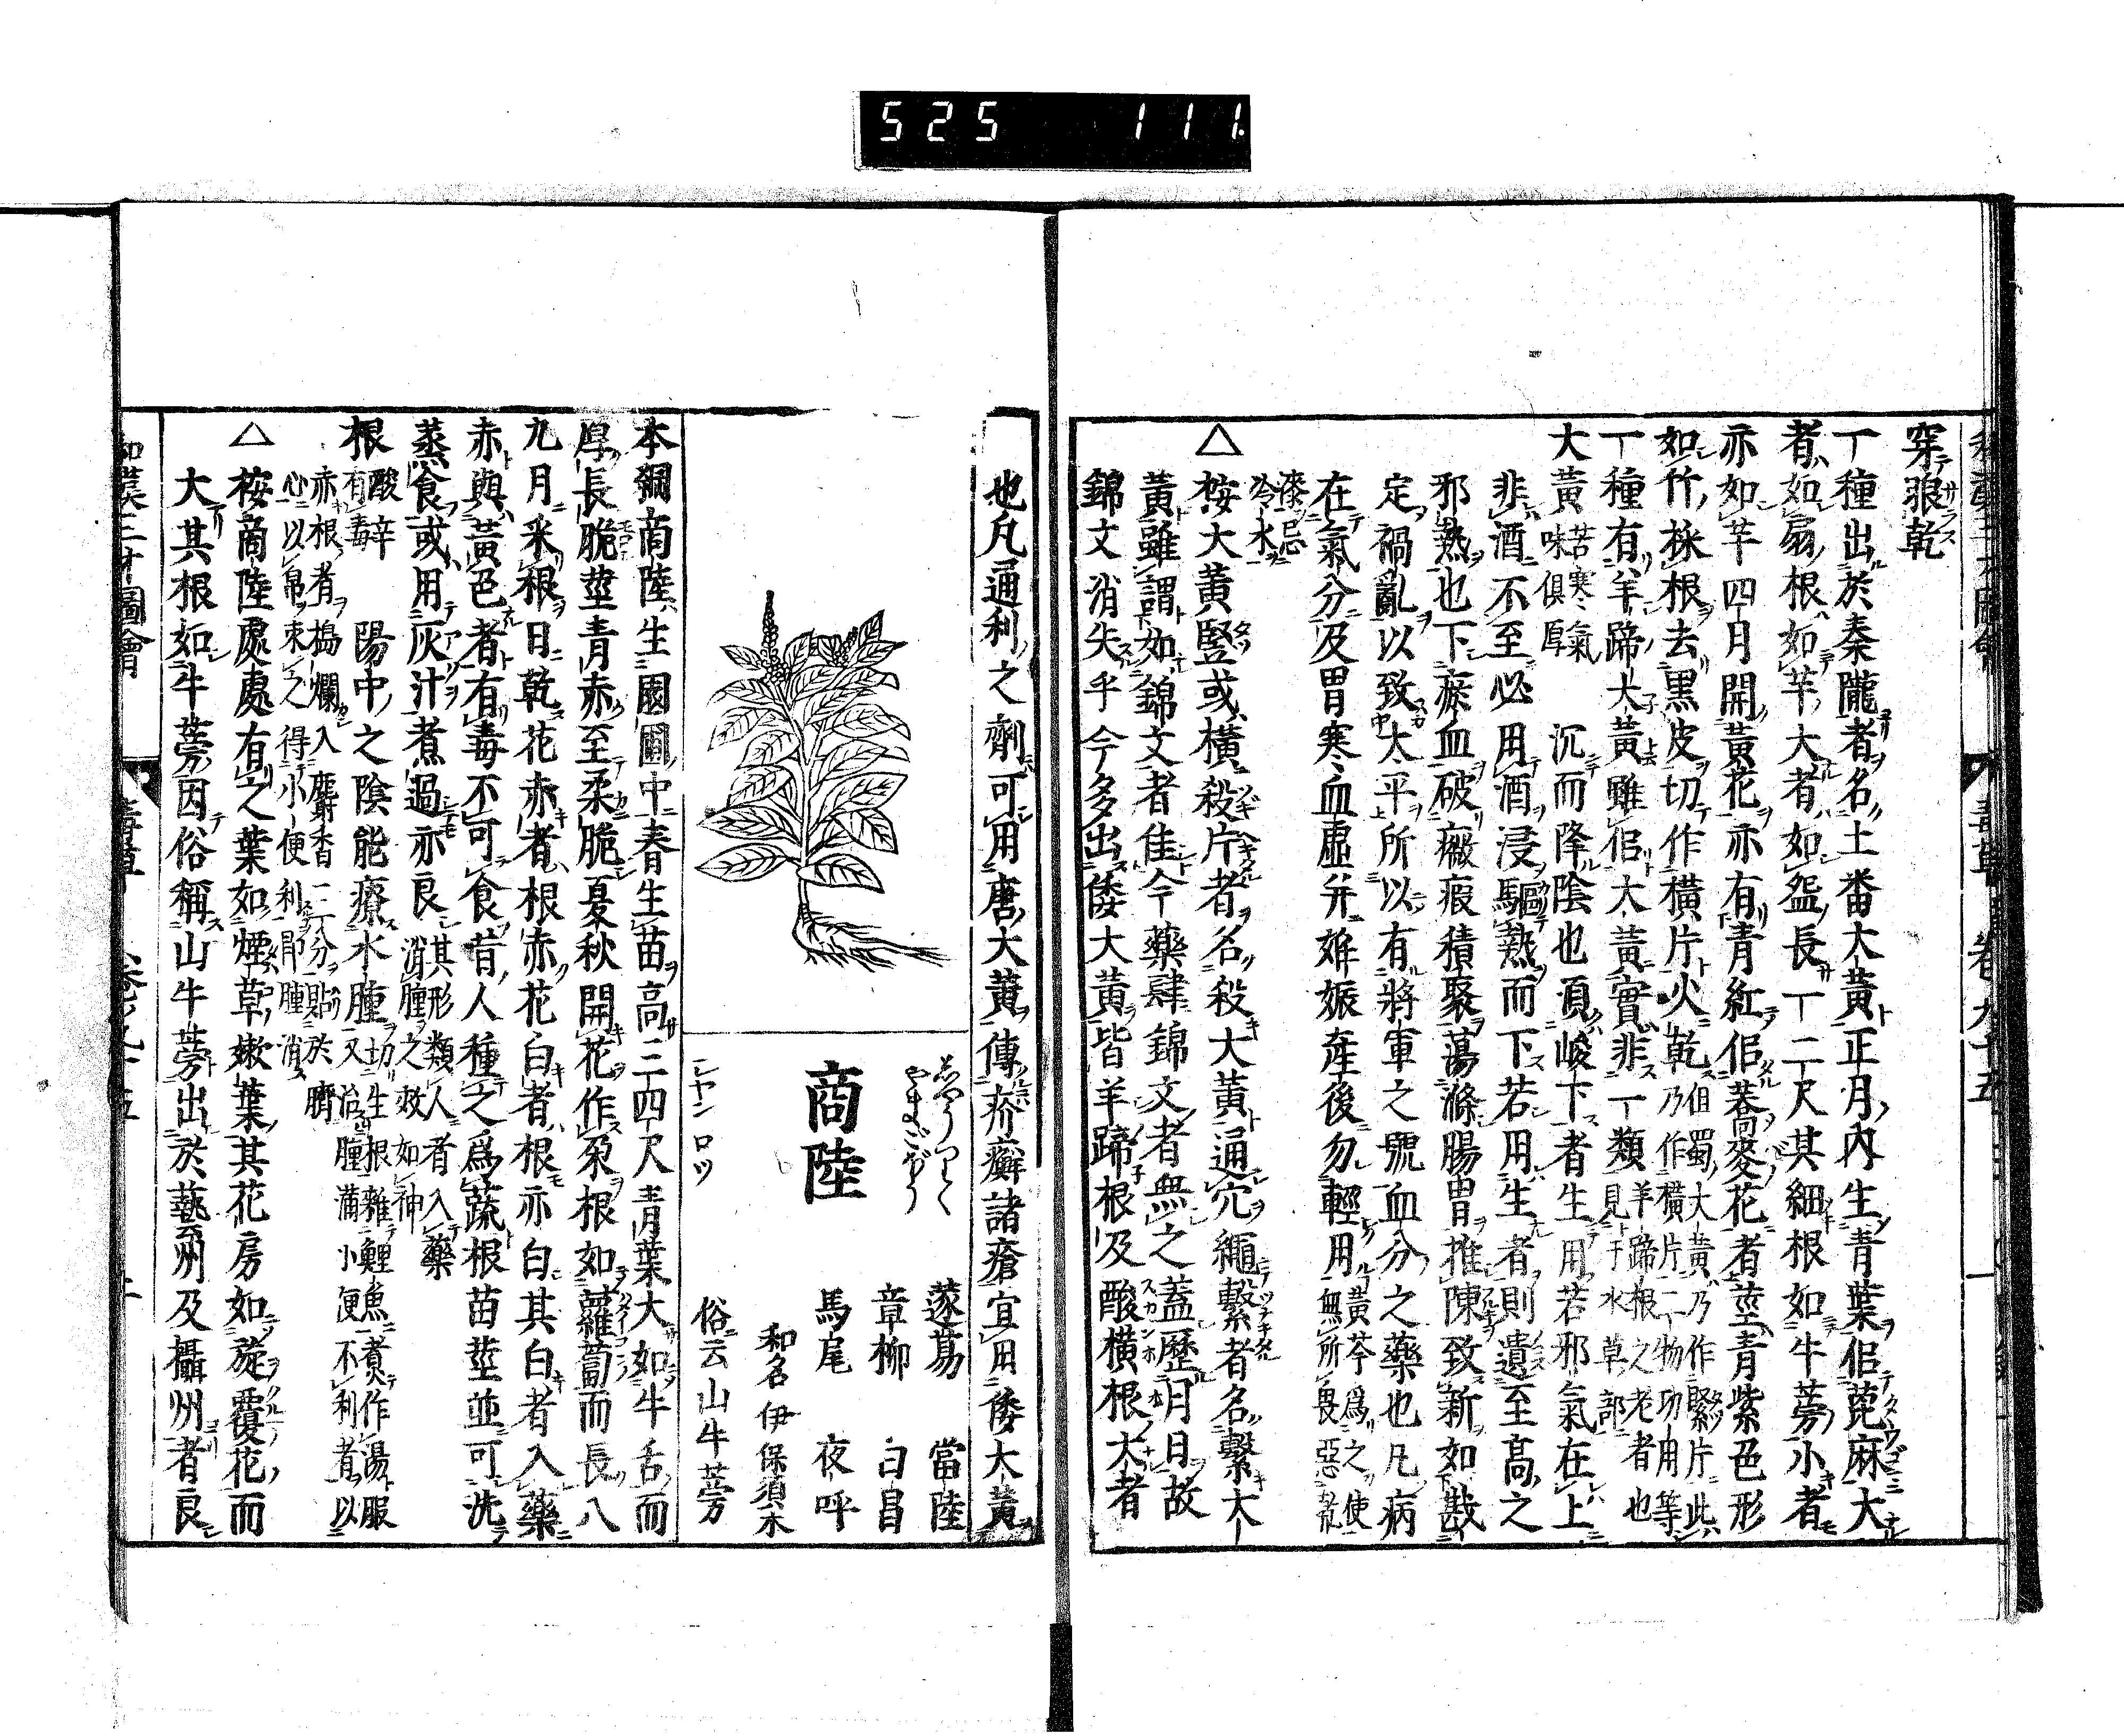 525 111
穿眼乾
一種出於秦隴者名土番大黃正月內生青葉似蓖麻大
者如扇根如芋大者如盌長一二尺其細根如牛蒡小者
亦如芋四月開黃花亦有青紅似蕎麥花者莖青紫色形
如竹採根去黑皮切作橫片火乾但蜀大黃乃作緊片此
乃作橫片二物功用等
一種有羊蹄大黃雖似大黃實非一類羊蹄根之老者也
見于水草部
大黃苦寒氣
味俱厚 沉而降陰也須峻下者生用若邪氣在上
非酒不至必用酒浸驅熱而下若用生者則遺至高之
邪熱也下瘀血破癥瘕積聚蕩滌腸胃推陳致新如戡
定禍亂以致太平所以有將軍之號血分之藥也凡病
在氣分及胃寒血虛并姙娠產後勿輕用黃芩爲之使
無所畏惡乾
漆忌
冷水
△按大黃豎或橫殺片者名殺大黃通穴繩繫者名繫大
黃雖謂如錦文者佳今藥肆錦文者無之蓋歷月日故
錦文消失乎今多出倭大黃皆羊蹄根及酸橫根大者
也凡通利之劑可用唐大黃傳疥癬諸瘡宜用倭大黃
しやうりく
やまごぼう
商陸
シヤンロツ
蓫䓪 當陸
章柳 白昌
馬尾 夜呼
和名伊保須木
俗云山牛蒡
本綱商陸生園圃中春生苗高三四尺青葉大如牛舌而
厚長脆莖青赤至柔脆夏秋開花作朶根如蘿蔔而長八
九月采根日乾花赤者根赤花白者根亦白其白者入藥
赤與黃色者有毒不可食昔人種之爲蔬根苗莖並可洗
蒸食或用灰汁煮過亦良其形類人者入藥
消腫之效如神
根酸辛
有毒 陽中之陰能療水腫切生根雜鯉魚煮作湯服
又治腫滿小便不利者以
赤根者搗爛入麝香三分貼於臍
心以帛束之得小便利即腫消
△按商陸處處有之葉如煙草嫩葉其花房如旋覆花而
大其根如牛蒡因俗稱山牛蒡出於藝州及攝州者良